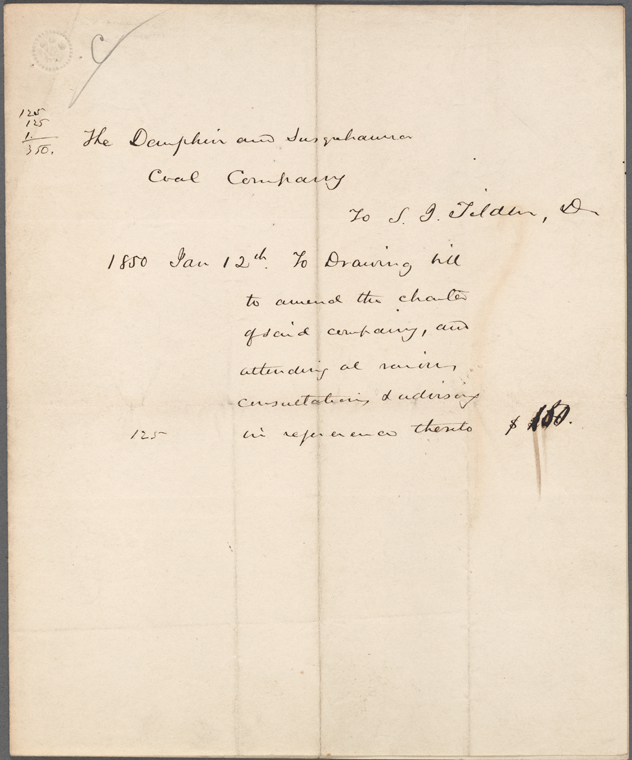 C
125
125
1.
350.
The Dauphin and Susquehanna
Coal Company
To S. J. Tilden, Dr
1850 Jan 12th. To Drawing bill
to amend the charter
of said company, and
attending at various
consultations & advising
125 in reference thereto $ 150.